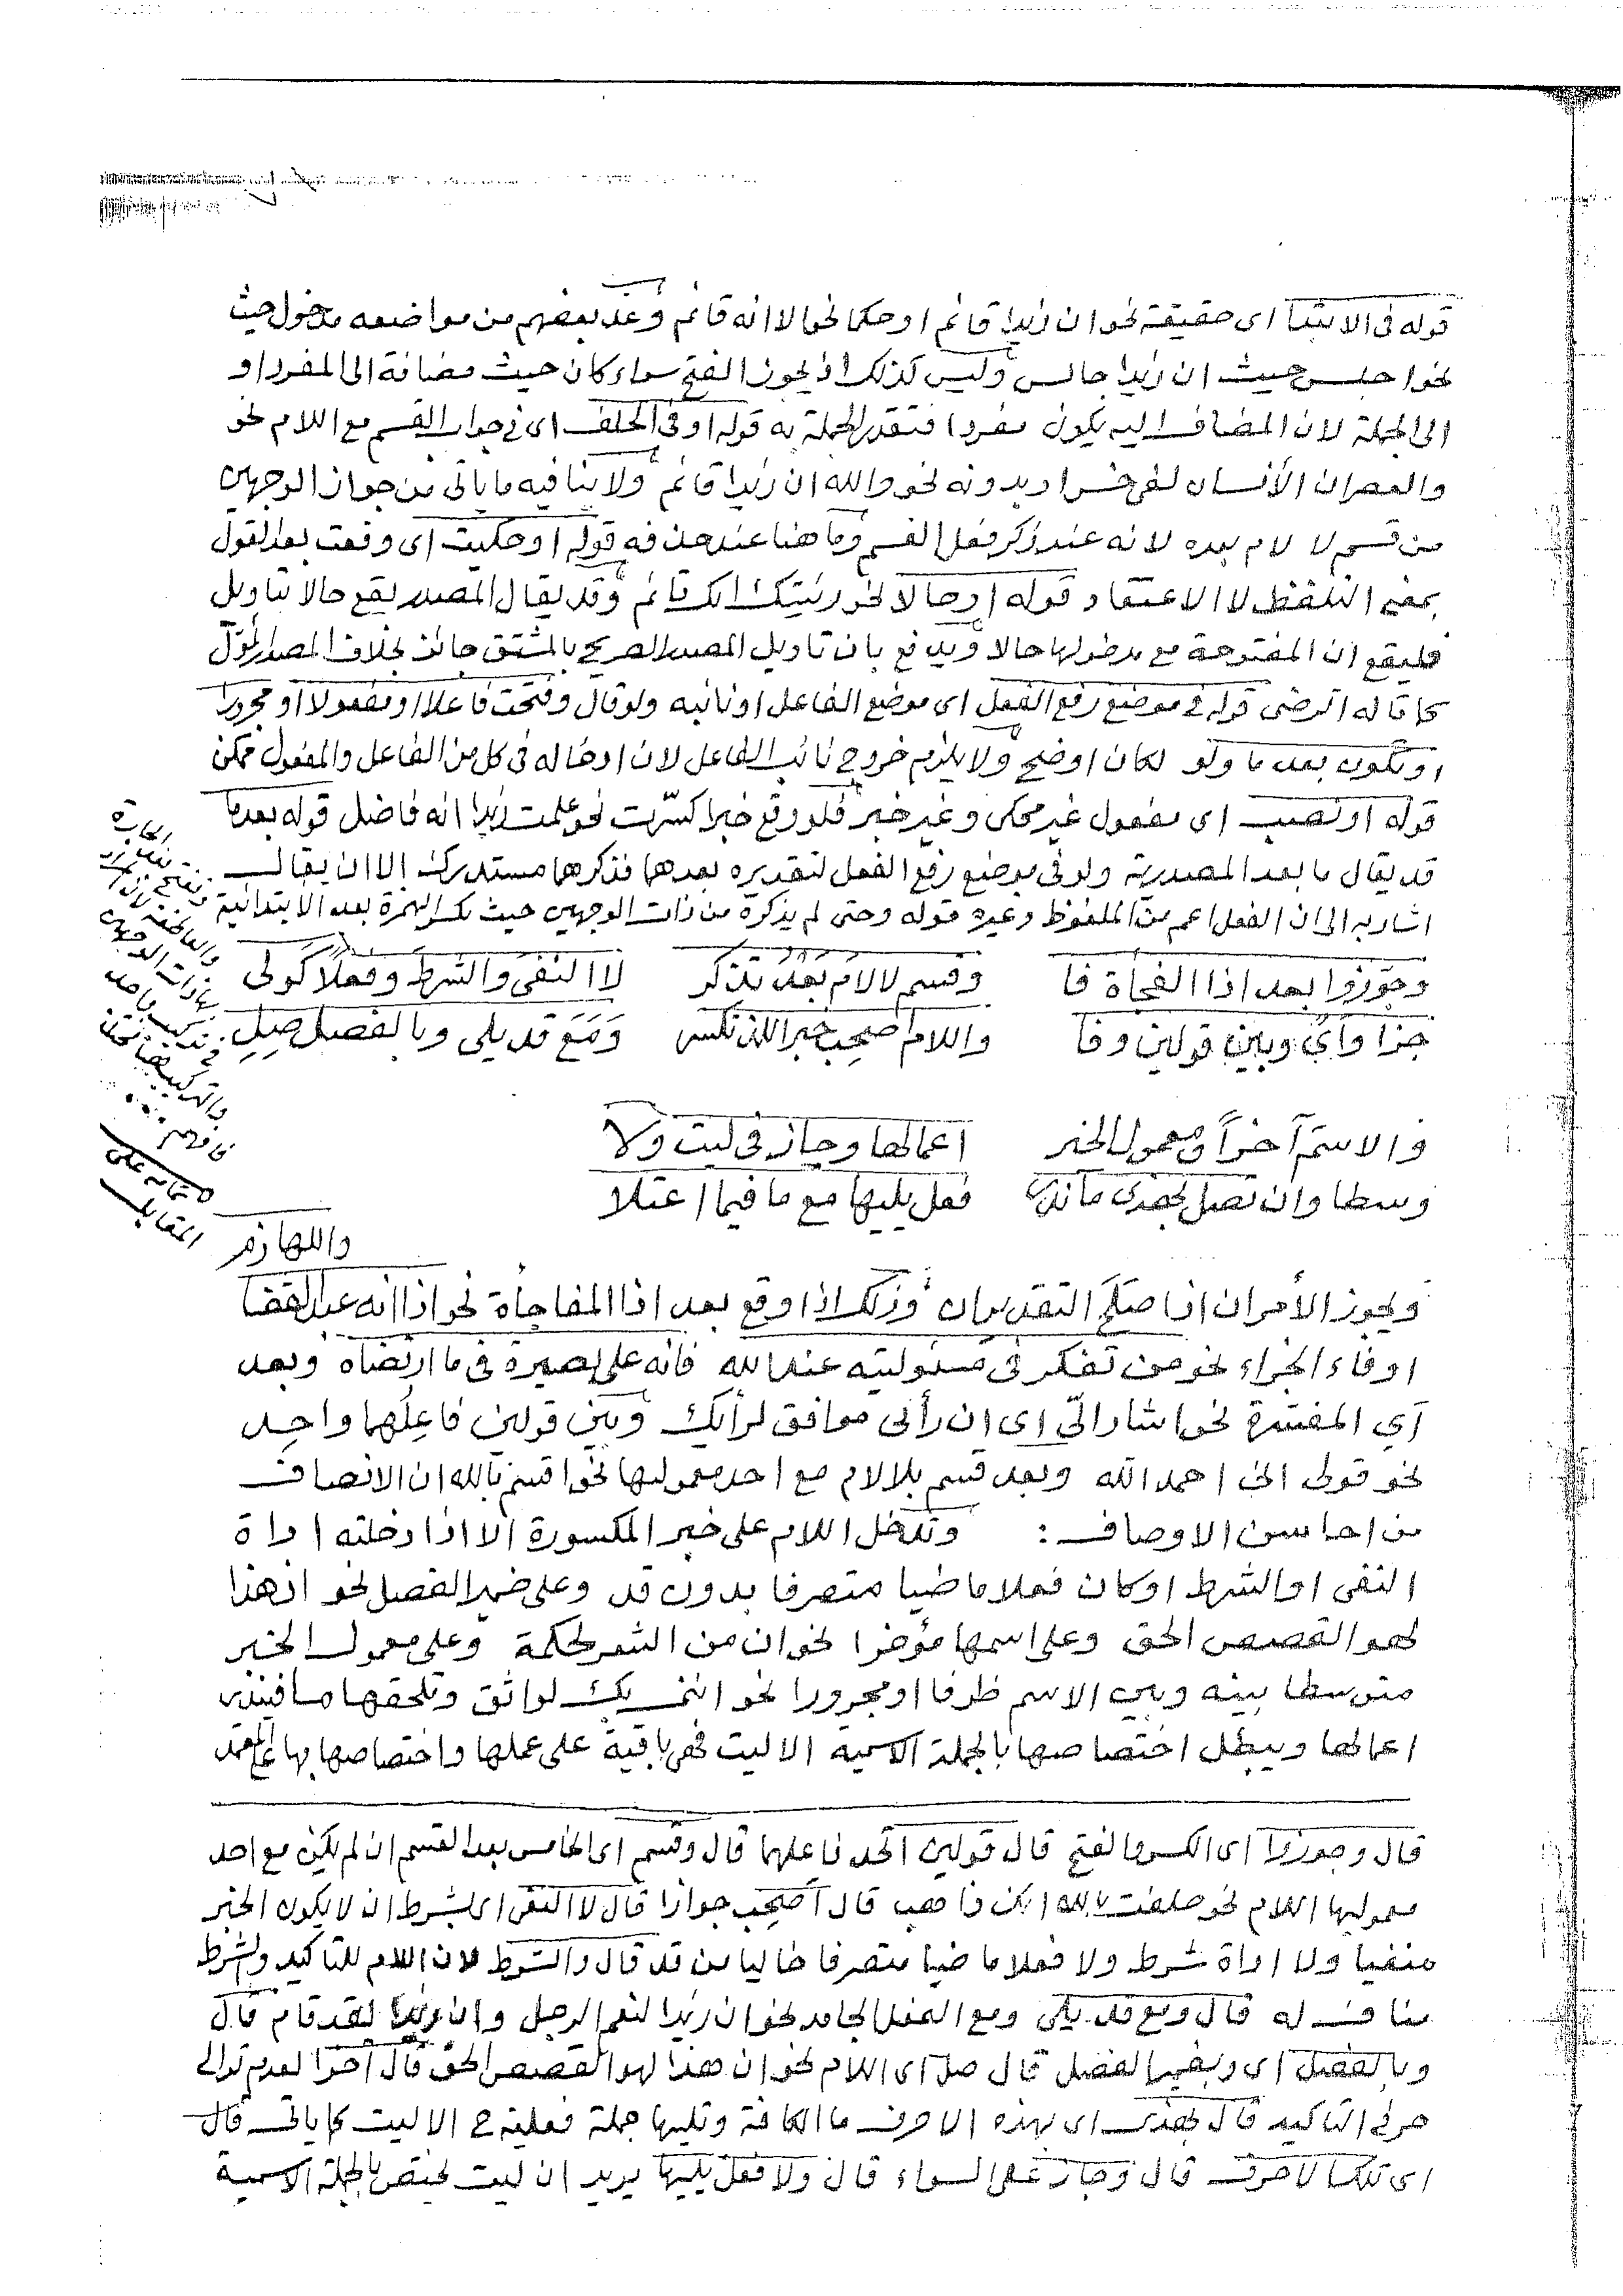 قوله فى الابتدا اى حقيقة نحو ان زيدا قائم او حكما نحو الا انه قائم وعد بعضهم من مواضعه مدخول حيث
نحو اجلس حيث ان زيدا جالس وليس كذلك اذ يجوز الفتح سواء كان حيث مضافة الى المفرد او
الى الجملة لان المضاف اليه يكون مفردا فتقدر الجملة به قوله او فى الحلف اى فى جواب القسم مع اللام نحو
والعصر ان الأنسان لفى خسر او بدونه نحو والله ان زيدا قائم ولا ينافيه ما يأتى من جواز الوجهين
من قسم لا لام بعده لانه عند ذكر فعل القسم وما هنا عند حذفه قوله او حكيت اى وقعت بعد القول
بمعنى التلفظ لا الاعتقاد قوله او حالا نحو رئيتك انك قائم وقد يقال المصدر يقع حالا بتاويل
فليقع ان المفتوحة مع مدخولها حالا ويدفع بان تاويل المصدر الصريح بالمشتق جائز بخلاف المصدر المؤل
كما قاله الرضى قوله فى موضع رفع الفعل اى موضع الفاعل او نائبه ولو قال وفتحت فاعلا او مفعولا او مجرورا
او تكون بعد ما ولو لكان اوضح ولا يلزم خروج نائب الفاعل لان ادخاله فى كل من الفاعل والمفعول ممكن
قوله او نصب اى مفعول غير محكى وغير خبر فلو وقع خبرا كسرت نحو علمت زيدا انه فاضل قوله بعد ما
قد يقال ما بعد المصدرية ولو فى موضع رفع الفعل لتقديره بعدهما فذكرهما مستدرك الا ان يقال
اشار به الى ان الفعل اعم من الملفوظ وغيره قوله وحتى لم يذكره من ذات الوجهين حيث تكسر الهمزة بعد الابتدائية
وتفتح بعد الجارة
والعاطفة لان المراد
بذات الوجهين
فى تركيب واحد
فافهم
وجوزوا بعد اذا الفجأة فا وقسم لا لام بعد تذكر لا النفى والشرط وفعلا كولى
جزا وأي وبين قولين وفا واللام اصحب خبر اللذ تكسر ومع قد يلى وبالفصل صل
والاسم آخرا ومعمول الخبر اعمالها وجاز فى ليت ولا
وسطا وان تصل بهذى ما نذر فعل يليها مع ما فيما اعتلا
واللهازم
ويجوز الأمران اذا صلح التقديران وذلك اذا وقع بعد اذا المفاجأة نحو اذا انه عبد القفا
او فاء الجزاء نحو من تفكر فى مسئوليته عند الله فانه على بصيرة فى ما ارتضاه وبعد
أي المفسرة نحو اشار الىّ اى ان رأى موافق لرأيك وبين قولين فاعلهما واحد
نحو قولى انى احمد الله وبعد قسم بلا لام مع احد معموليها نحو اقسم بالله ان الانصاف
من احاسن الاوصاف : وتدخل اللام على خبر المكسورة الا اذا دخلته اداة
النفى او الشرط او كان فعلا ماضيا متصرفا بدون قد وعلى ضمير الفصل نحو ان هذا
لهو القصص الحق وعلى اسمها مؤخرا نحو ان من الشعر لحكمة وعلى معمول الخبر
متوسطا بينه وبين الاسم ظرفا او مجرورا نحو انى بك لواثق وتلحقها ما فيندر
اعمالها ويبطل اختصاصها بالجملة الاسمية الا ليت فهى باقية على عملها واختصاصها بها على المعتمد
قال وجوزوا اى الكسر والفتح قال قولين اتحد فاعلهما قال وقسم اى الخامس بعد القسم ان لم يكن مع احد
معموليها اللام نحو حلفت بالله انك ذاهب قال اصحب جوازا قال لا النفى اى بشرط ان لا يكون الخبر
منفيا ولا اداة شرط ولا فعلا ماضيا متصرفا خاليا من قد قال والشرط لان اللام للتاكيد والشرط
مناف له قال ومع قد يلى ومع الفعل الجامد نحو ان زيدا لنعم الرجل وان زيدا لقد قام قال
وبالفصل اى وبضمير الفصل قال صل اى اللام نحو ان هذا لهو القصص الحق قال آخرا لعدم توالى
حرفى التاكيد قال بهذى اى بهذه الاحرف ما الكافة وتليها جملة فعلية ح الا ليت كما ياتى قال
اى تلك الاحرف قال وجاز على السواء قال ولا فعل يليها يريد ان ليت تختص بالجملة الاسمية